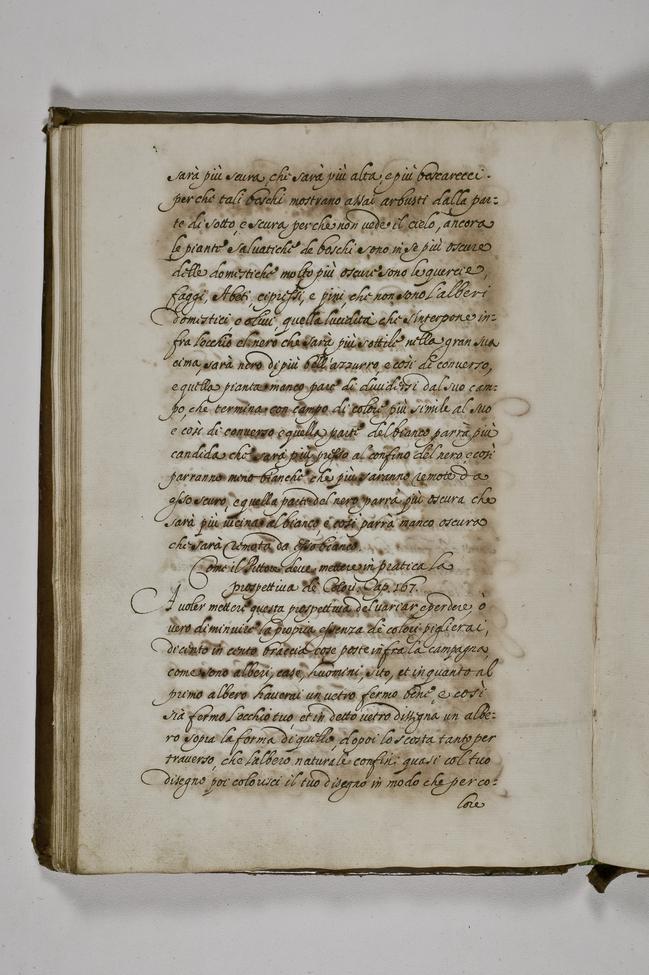 sarà più scura, che sarà più alta, e più boscarecci.
perche tali boschi mostrano assai arbusti dalla par:
te di sotto, e scura perche non vede il cielo, ancora
le piante salvatiche de boschi sono in se più oscure
delle domestiche molto più oscure sono le quercie,
faggi, Abeti, cipressi, e pini che non sono l'alberi
domestici o olivi, quella lucidità che s'interpone in:
fra l'occhio el nero che sarà più sottile nella gran sua
cima, sarà nero di più bell'azzurro, e così di converso,
e quella pianta manco pare di dividersi dal suo cam:
po, che termina con campo di colore più simile al suo
e così di converso e quella parte del bianco parrà più
candida che sarà più presso al confino del nero, e così
parranno meno bianche che più saranno remote da
esso scuro, e quella parte del nero parrà più oscura che
sarà più vicina al bianco, e così parrà manco oscura
che sarà remota da esso bianco.
Come il Pittore deve mettere in pratica la
prospettiva de Colori. Cap. 167.
A voler mettere questa prospettiva del variar e perdere, ò
vero diminuire la propria essenza de colori piglierai,
di cento in cento braccia cose poste infra la campagna,
come sono alberi, case, huomini, sito, et in quanto al
primo albero haverai un vetro fermo bene, e così
sia fermo l'occhio tuo, et in detto vetro disegna un albe:
ro sopra la forma di quello, dopoi lo scosta tanto per
traverso, che l'albero naturale confini quasi col tuo
disegno poi colorisci il tuo disegno in modo che per co:
lore